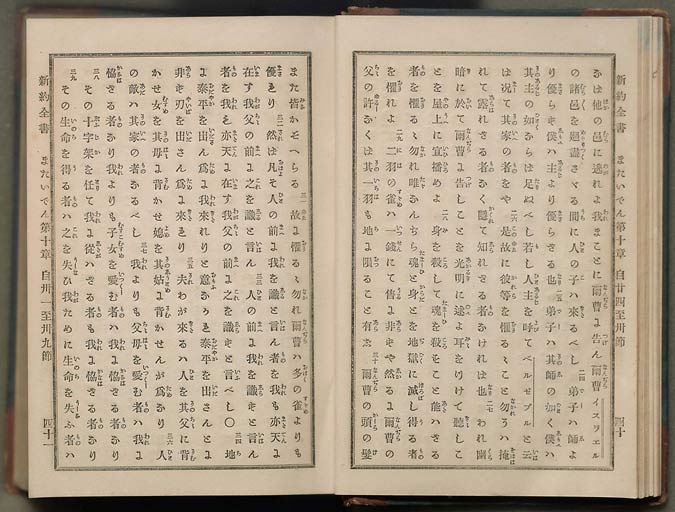 新約全書　またいでん第十章　自廿四至卅節　四十
かば他の邑に逃れよ我まことに爾曹に告ん爾曹イスラエル
の諸邑を廻盡さゞる間に人の子ハ來るべし 二四 弟子ハ師よ
り優らず僕ハ主より優らざる也 二五 弟子ハ其師の如く僕ハ
其主の如ならば足ぬべし若し人主を呼てベルゼブルと云
は况て其家の者をや 二六 是故に彼等を懼るゝこと勿れハ掩
れて露れざる者なく隱て知れざる者なければ也 二七 われ幽
暗に於て爾曹に告しことを光明に述よ耳をつけて聽しこ
とを屋上に宣播めよ 二八 身を殺して魂を殺すこと能ハざる
者を懼るゝ勿れ唯なんぢら魂と身とを地獄に滅し得る者
を懼れよ 二九 二羽の雀ハ一錢にて售に非ずや然るに爾曹の
父の許なくば其一羽も地に隕ること有じ 三十 爾曹の頭の髮
また皆かぞへらる 三一 故に懼るゝ勿れ爾曹ハ多の雀よりも
優れり 三二 然ば凡そ人の前に我を識と言ん者を我も亦天に
在す我父の前に之を識と言ん 三三 人の前に我を識ずと言ん
者を我も亦天に在す我父の前に之を識ずと言べし〇 三四 地
に泰平を出ん爲に我來れりと意なかれ泰平を出さんとに
非ず刃を出さん爲に來れり 三五 夫わが來るハ人を其父に背
かせ女を其母に背かせ媳を其姑に背かせんが爲なり 三六 人
の敵ハ其家の者なるべし 三七 我よりも父母を愛む者ハ我に
協ざる者なり我よりも子女を愛む者ハ我に協ざる者なり
三八 その十字架を任て我に從ハざる者も我に協ざる者なり
三九 その生命を得る者ハ之を失ひ我ために生命を失ふ者ハ
新約全書　またいでん第十章　自卅一至卅九節　四十一